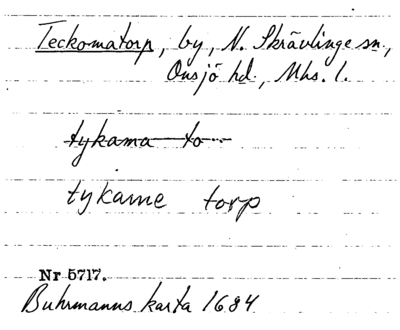 Teckomatorp, by, N. Skrävlinge sn.,
Onsjö hd., Mhs. l.
tykama to
tykame torp
Nr 5717.
Buhrmanns karta 1684